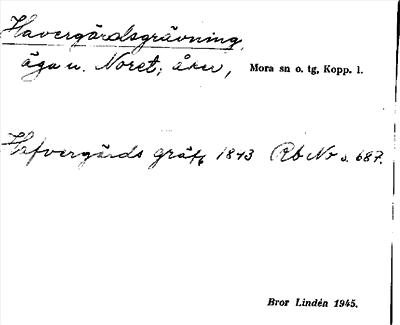 Havergärdsgrävning,
äga u. Noret; åker, Mora sn o. tg, Kopp. l.
Hafvergärds gräfn 1843 Rb Nr s. 687.
Bror Lindén 1945.